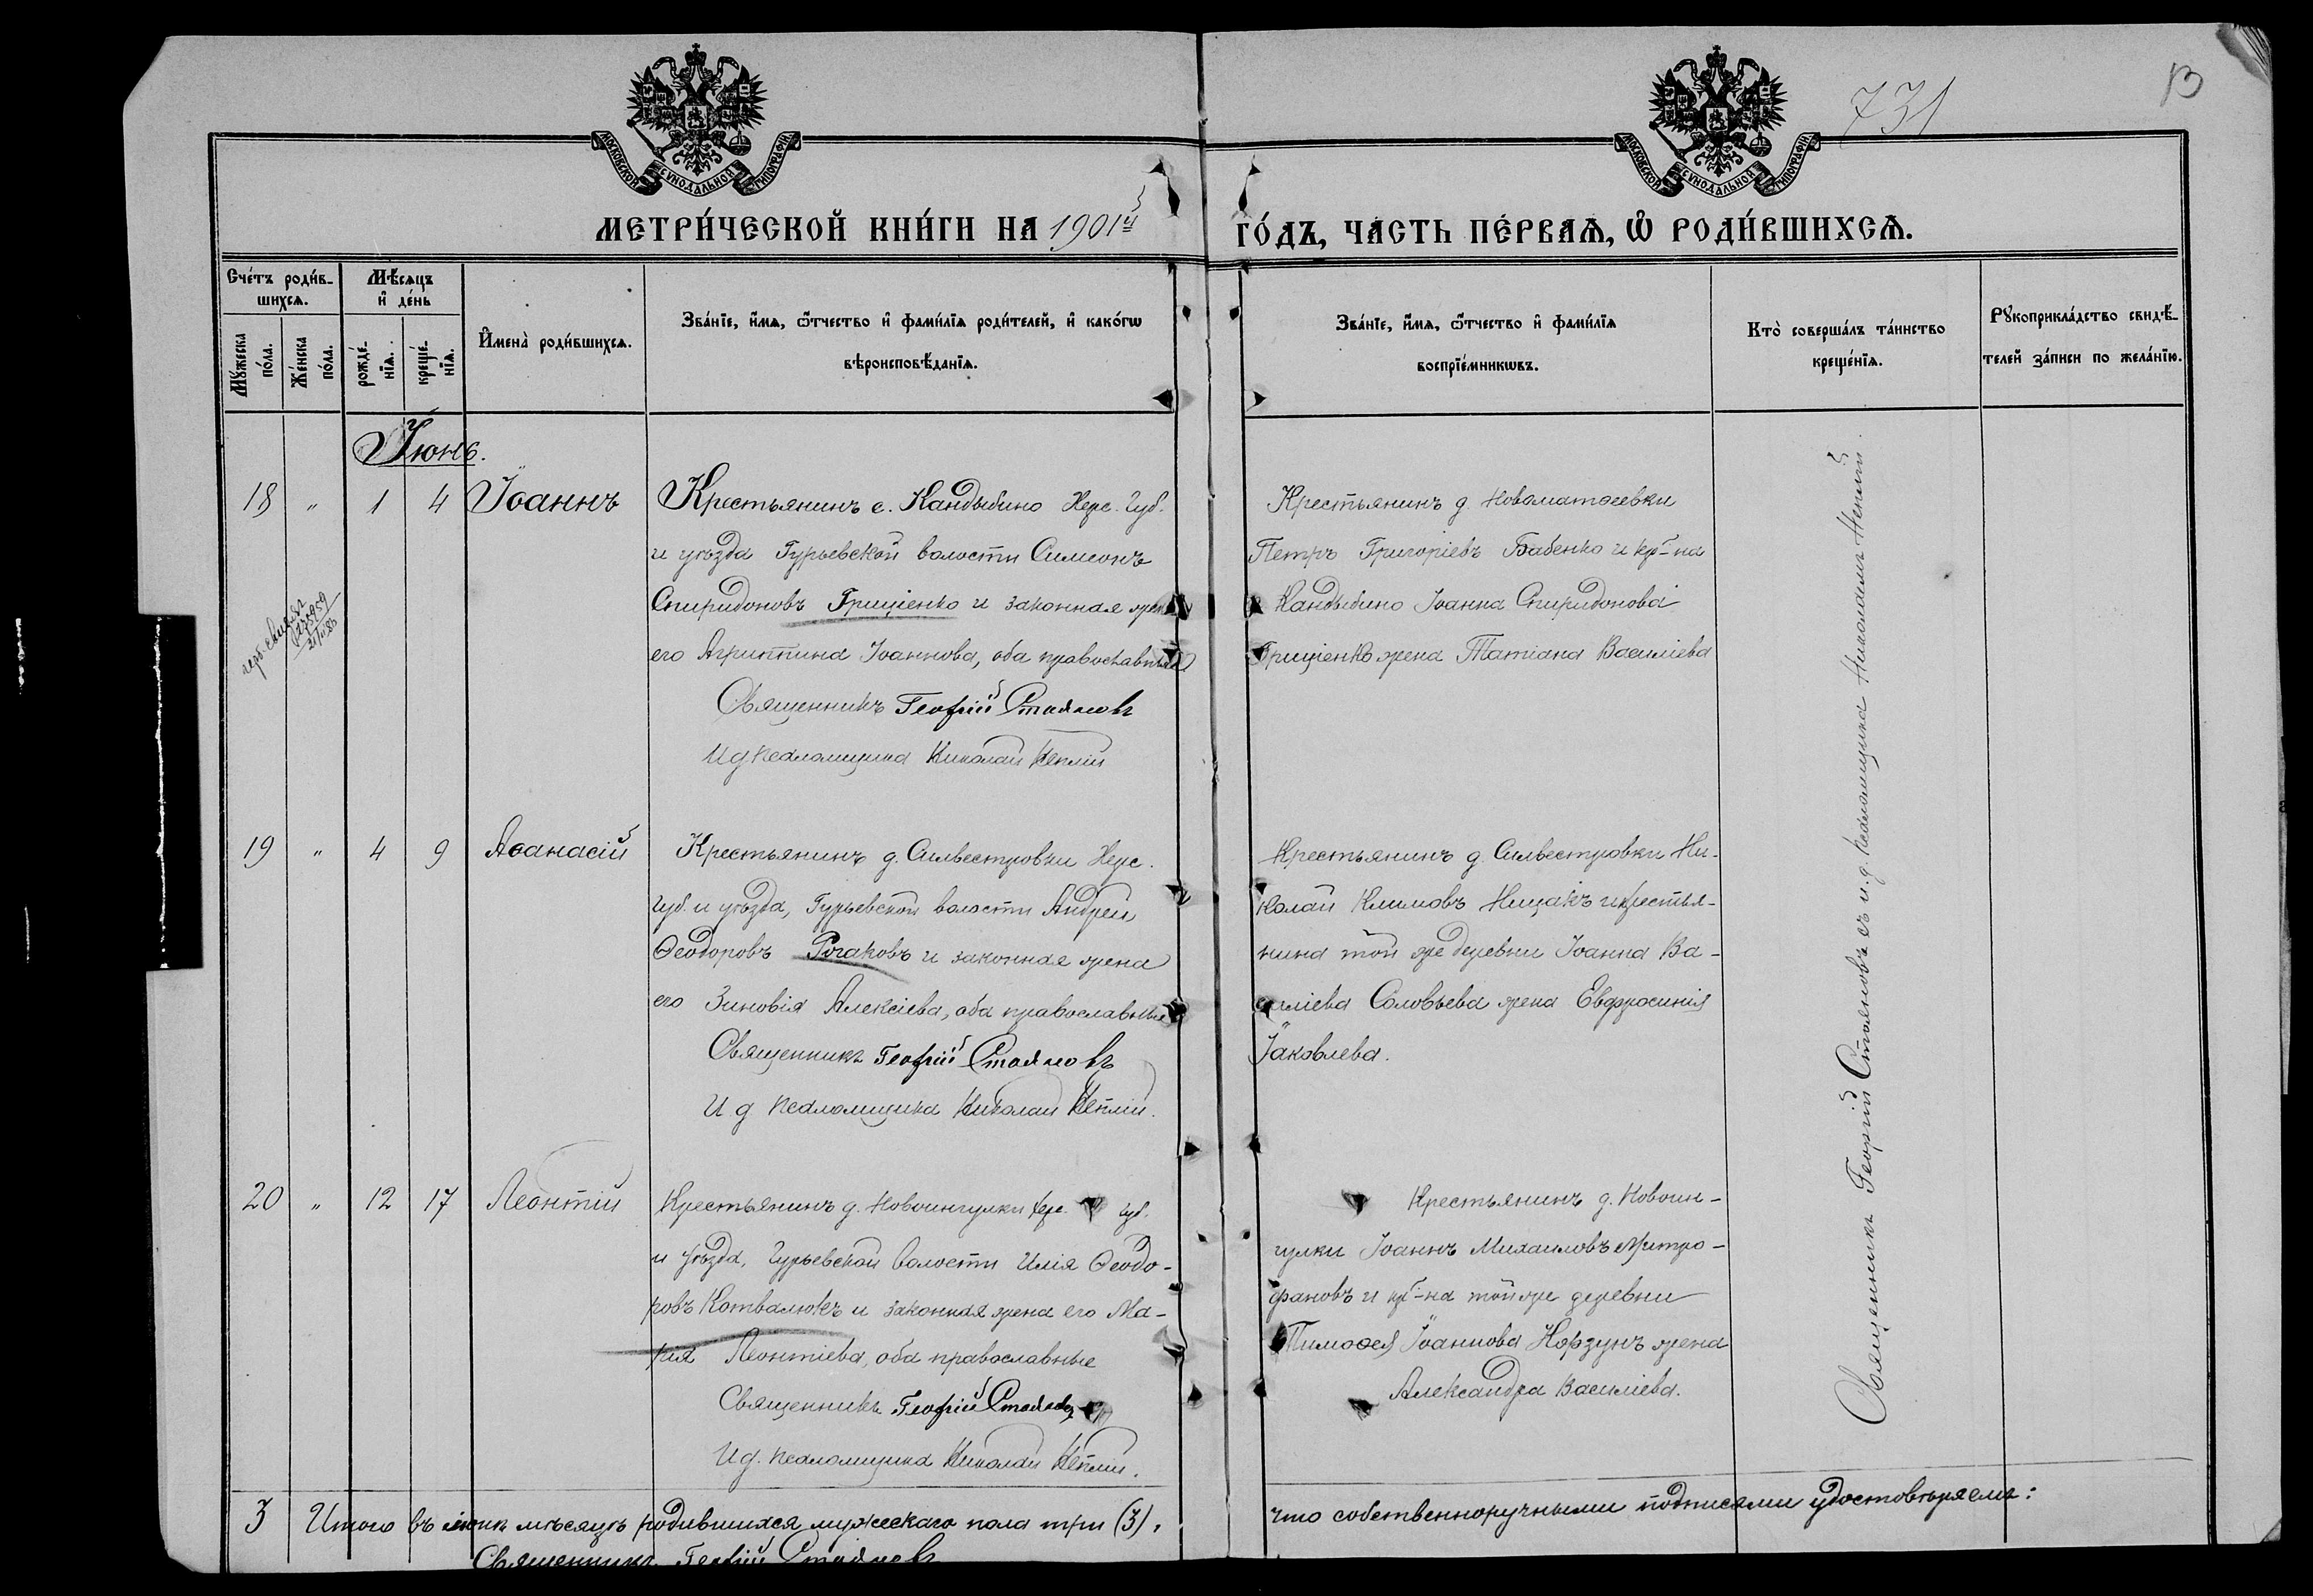 731
13
МОСКОВСКОЙ СѴНОДАЛЬНОЙ ТИПОГРАФІИ
МОСКОВСКОЙ СѴНОДАЛЬНОЙ ТИПОГРАФІИ
МЕТРИ́ЧЕСКОЙ КНИ́ГИ НА 1901й ГО́ДЪ, ЧАСТЬ ПЕ́РВАѦ, Ѽ РОДИ́ВШИХСѦ.
Сче́тъ роди́в-
шихсѧ.
Мѣ́сѧцъ
и҆ де́нь
Мꙋ́жеска
по́ла.
Же́нска
по́ла.
рожде́-
нїѧ.
креще́-
нїѧ.
И҆мена̀ роди́вшихсѧ.
Зва́нїе, и҆́мѧ, ѻ҆́тчество и҆ фами́лїѧ роди́телей, и҆ како́гѡ
вѣроисповѣ́данїѧ.
Зва́нїе, и҆́мѧ, ѻ҆́тчество и҆ фами́лїѧ
воспрїе́мникѡвъ.
Кто̀ соверша́лъ та́инство
креще́нїѧ.
Рꙋкоприкла́дство свидѣ́-
телей за́писи по жела́нїю.
Іюнь.
18 " 1 4 Іоаннъ
Крестьянинъ с. Кандыбино Херс. Губ.
и уѣзда Гурьевской волости Симеонъ
Спиридоновъ Гриценко и законная жена
его Агриппина Іоаннова, оба православные
Священникъ Георгій Стояновъ
И д псаломщика Николай
Крестьянинъ д. Новоматвеевки
Петръ Григоріевъ Бабенко и кр-на
с. Кандыбино Іоанна Спиридонова
Гриценко жена Татіана Василіева
19 " 4 9 Аѳанасій
Крестьянинъ д. Сильвестровки Херс.
Губ. и уѣзда, Гурьевской волости Андрей
Ѳеодоровъ Рогаковъ и законная жена
его Зиновія Алексіева, оба православные
Священникъ Георгій Стояновъ
И д псаломщика Николай
Крестьянинъ д. Сильвестровки Ни-
колай Климовъ Ницакъ и крестья-
нина той же деревни Іоанна Ва-
силіева Соловьева жена Евфросинія
Іаковлева.
20 " 12 17 Леонтій
Крестьянинъ д. Новоингулки Хер. губ.
и уѣзда, Гурьевской волости Илія Ѳеодо-
ровъ Котвалюкъ и законная жена его Ма-
рія Леонтіева, оба православные
Священникъ Георгій Стояновъ
И д. псаломщика Николай
Крестьянинъ д. Новоин-
гулки Іоаннъ Михаиловъ Митро-
фановъ и кр-на той же деревни
Тимоѳея Іоаннова Корзунъ жена
Александра Василіева.
Священникъ Георгій Стояновъ съ и. д. псаломщика Николаемъ
3 Итого въ іюнѣ мѣсяцѣ родившихся мужескаго пола три (3),
что собственноручными подписями удостовѣряемъ:
Священникъ Георгій Стояновъ